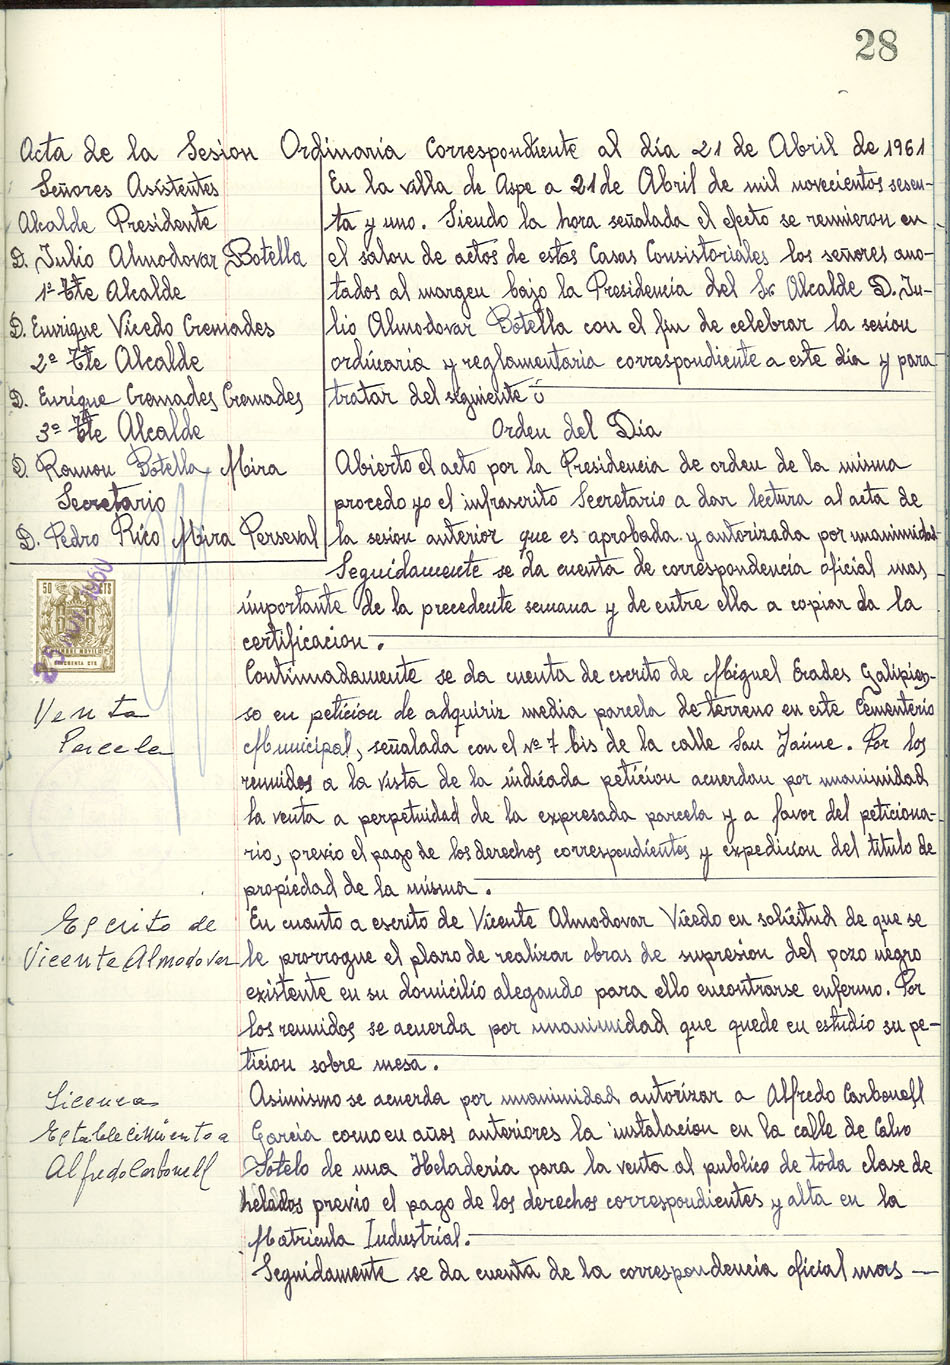 28
Acta de la Sesion Ordinaria Correspondiente al día 21 de Abril de 1961
Señores Asistentes
Alcalde Presidente
D. Julio Almodovar Botella
1º Tte Alcalde
D. Enrique Vicedo Cremades
2º Tte Alcalde
D. Enrique Cremades Cremades
3º Tte Alcalde
D. Ramon Botella Mira
Secretario
D. Pedro Rico Mira Perseval
En la villa de Aspe a 21 de Abril de mil novecientos sesen-
ta y uno. Siendo la hora señalada el efecto se reunieron en
el salon de actos de estas Casas Consistoriales los señores ano-
tados al margen bajo la Presidencia del Sr Alcalde D. Ju-
lio Almodovar Botella con el fin de celebrar la sesion
ordinaria y reglamentaria correspondiente a este día y para
tratar del siguiente:
Orden del Día
Abierto el acto por la Presidencia de orden de la misma
procedo yo el infrascrito Secretario a dar lectura al acta de
la sesion anterior que es aprobada y autorizada por unanimidad
Seguidamente se da cuenta de correspondencia oficial mas
importante de la precedente semana y de entre ella a copiar da la
certificacion.
50 CTS
Venta
Parcela
Continuadamente se da cuenta de escrito de Miguel Erades Galipien-
so en peticion de adquirir media parcela de terreno en este Cementerio
Municipal, señalada con el nº 7 bis de la calle San Jaime. Por los
reunidos a la vista de la indicada peticion acuerdan por unanimidad
la venta a perpetuidad de la expresada parcela y a favor del peticiona-
rio, previo el pago de los derechos correspondientes y expedicion del titulo de
propiedad de la misma.
Escrito de
Vicente Almodovar
En cuanto a escrito de Vicente Almodovar Vicedo en solicitud de que se
le prorrogue el plazo de realizar obras de supresion del pozo negro
existente en su domicilio alegando para ello encontrarse enfermo. Por
los reunidos se acuerda por unanimidad que quede en estudio su pe-
ticion sobre mesa.
Licencia
Establecimiento a
Alfredo Carbonell
Asimismo se acuerda por unanimidad autorizar a Alfredo Carbonell
Garcia como en años anteriores la instalacion en la calle de Calvo
Sotelo de una Heladería para la venta al publico de toda clase de
helados previo el pago de los derechos correspondientes y alta en la
Matricula Industrial.
Seguidamente se da cuenta de la correspondencia oficial mas